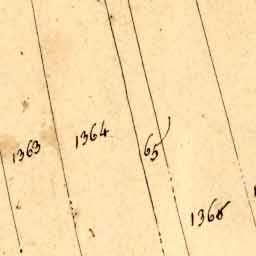 1363
1364
65
1366